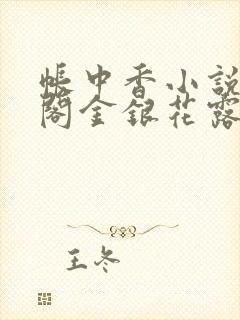 帐中香小说
阁金银花露
王冬